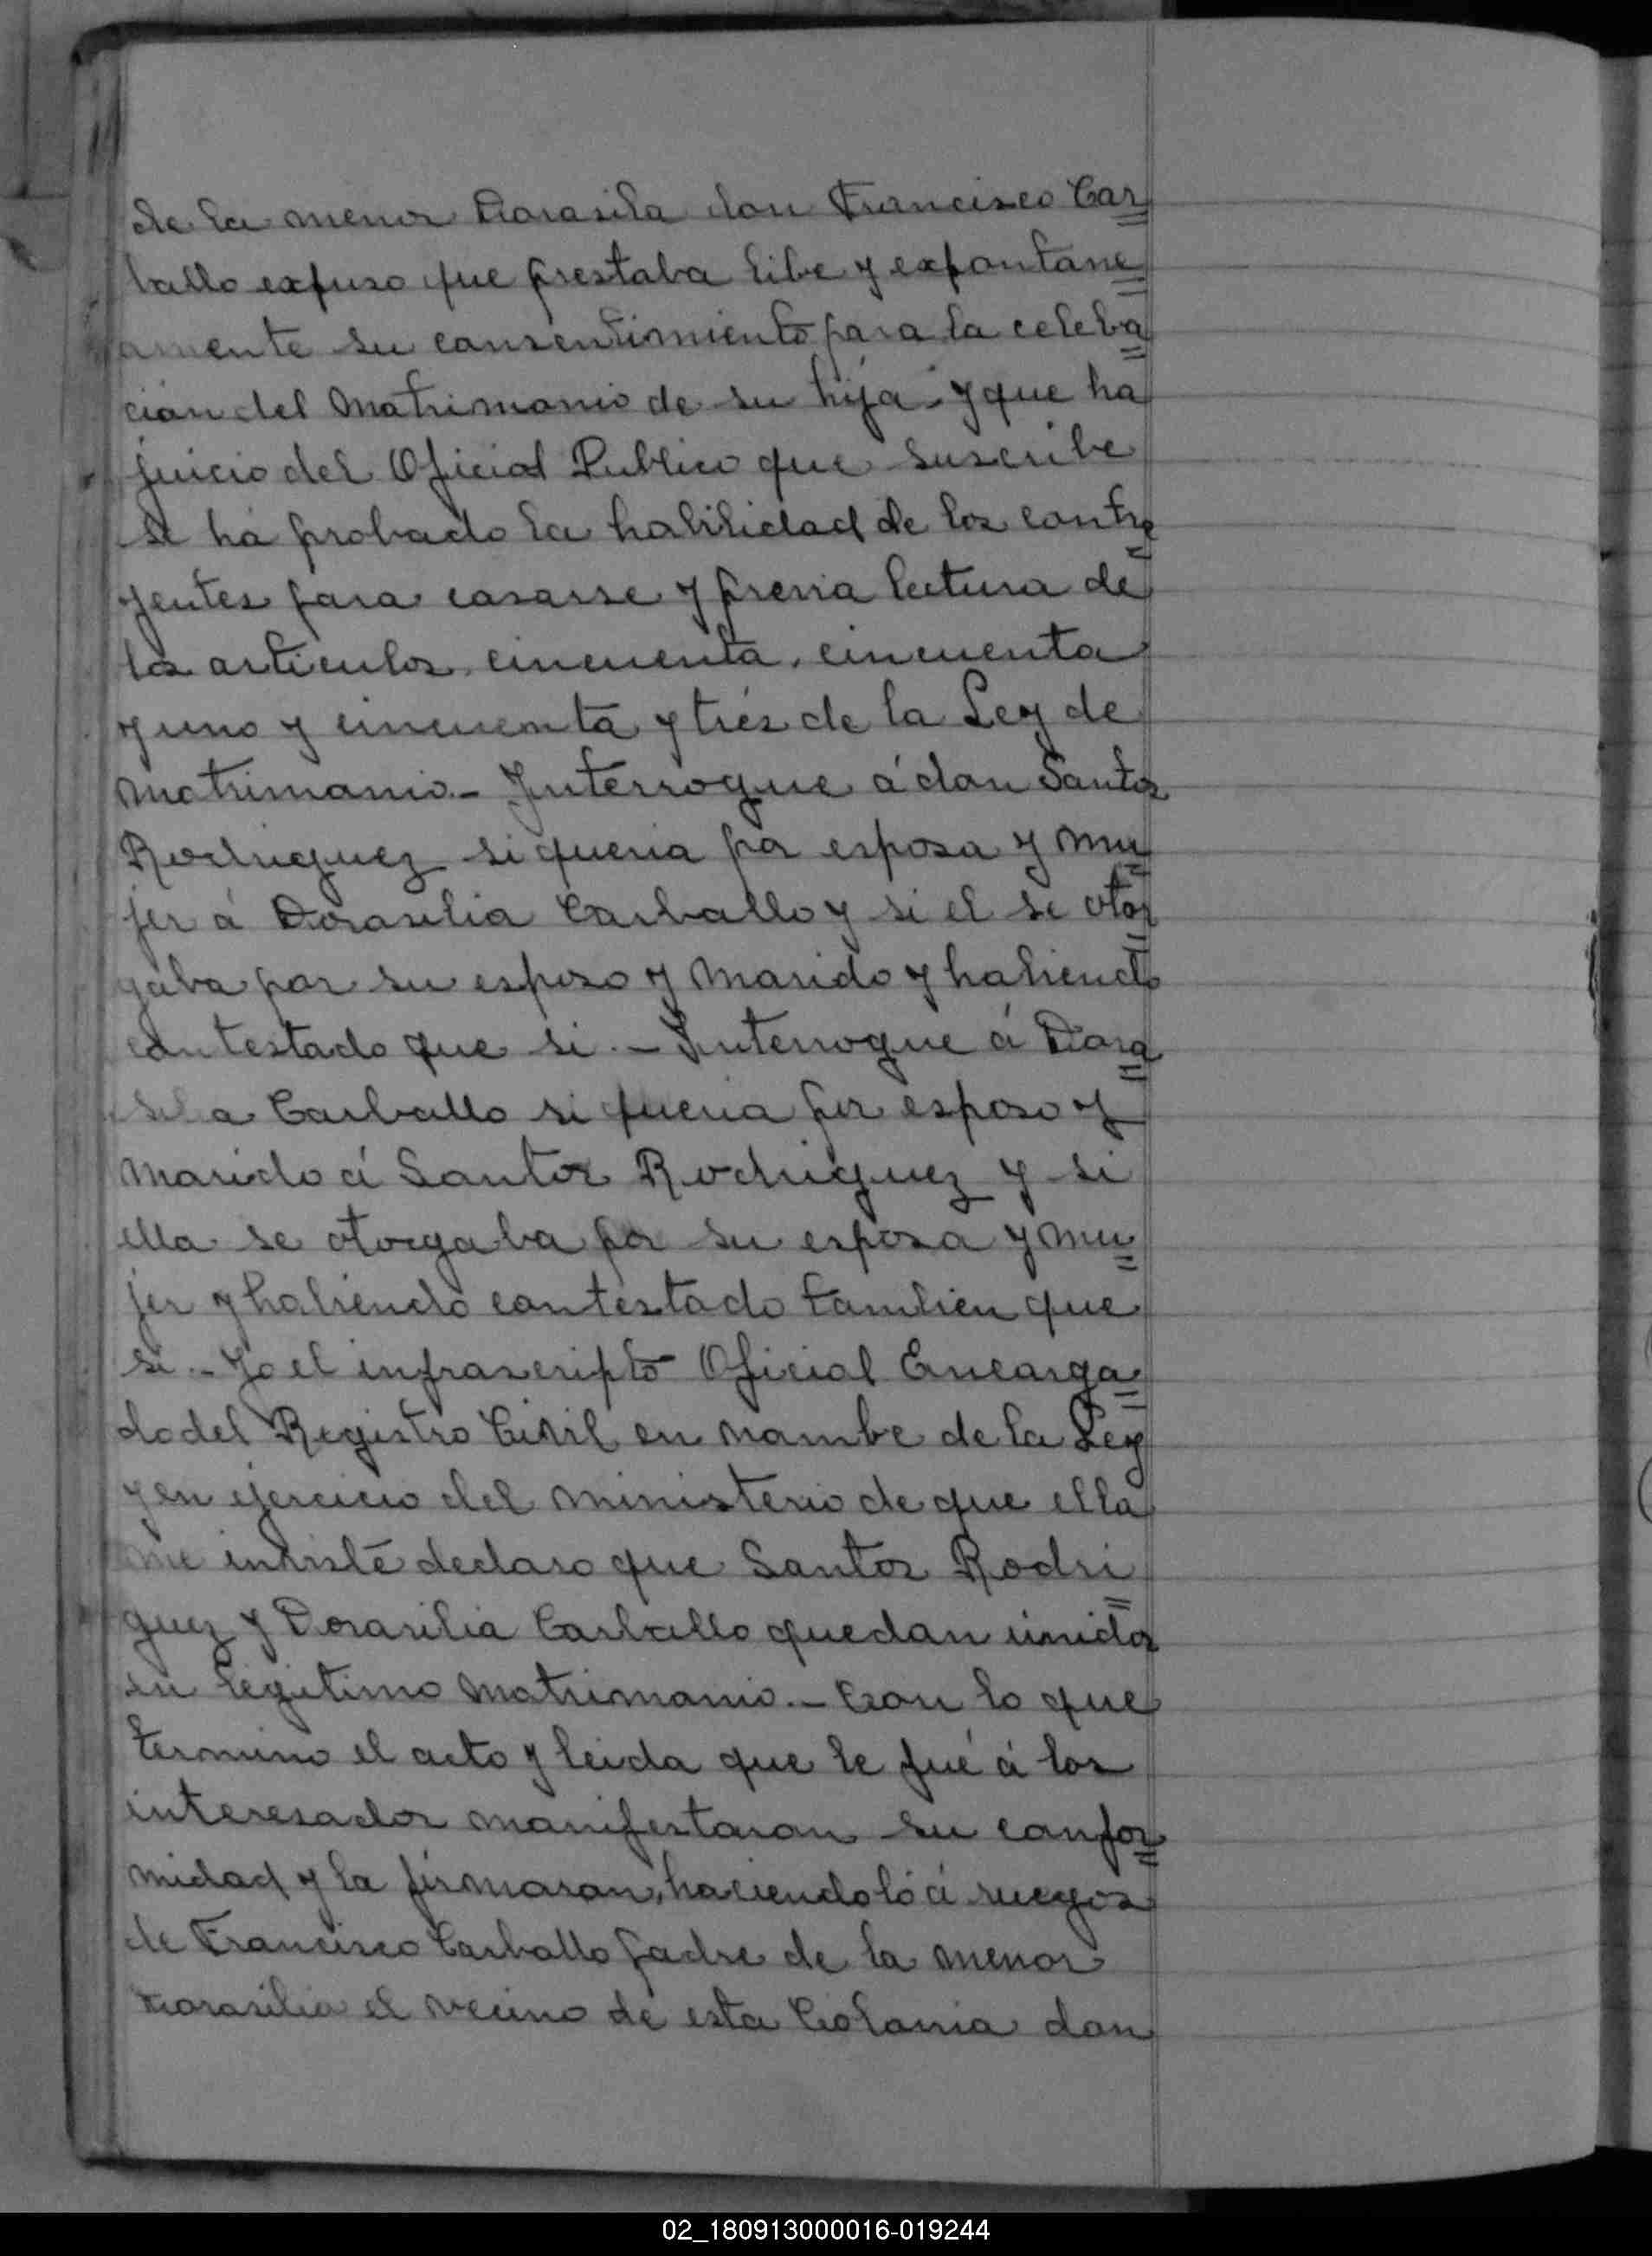 de la menor Dorasila don Francisco Car=
ballo expuso que prestaba libe y expontane=
amente su consentimiento para la celeba=
ción del Matrimonio de su hija. y que ha
juicio del Oficial Publico que suscribe
se há probado la habilidad de los contra=
yentes para casarse y previa lectura de
los articulos cincuenta, cincuenta
y uno y cincuenta y trés de la Ley de
Matrimonio.- Interrogue á don Santos
Rodriguez si queria por esposa y mu=
jer á Dorasilia Carballo y si el se otor=
gaba por su esposo y Marido y habiendo
contestado que si.- Interrogue á Dora=
sila Carballo si queria por esposo y
Marido á Santos Rodriguez y si
ella se otorgaba por su esposa y mu=
jer y habiendo contestado tambien que
si.- Yo el infrascripto Oficial Encarga=
do del Registro Civil en nombe de la Ley
y en ejercicio del ministerio de que ella
me inviste declaro que Santos Rodri=
guez y Dorasilia Carballo quedan unidos
en legitimo Matrimonio.- Con lo que
termino el acto y leida que le fué á los
interesados manifestaron su confor=
midad y la firmaron, haciendoló á ruegos
de Francisco Carballo padre de la menor
Dorasilia el vecino de esta Colonia don
02_180913000016-019244